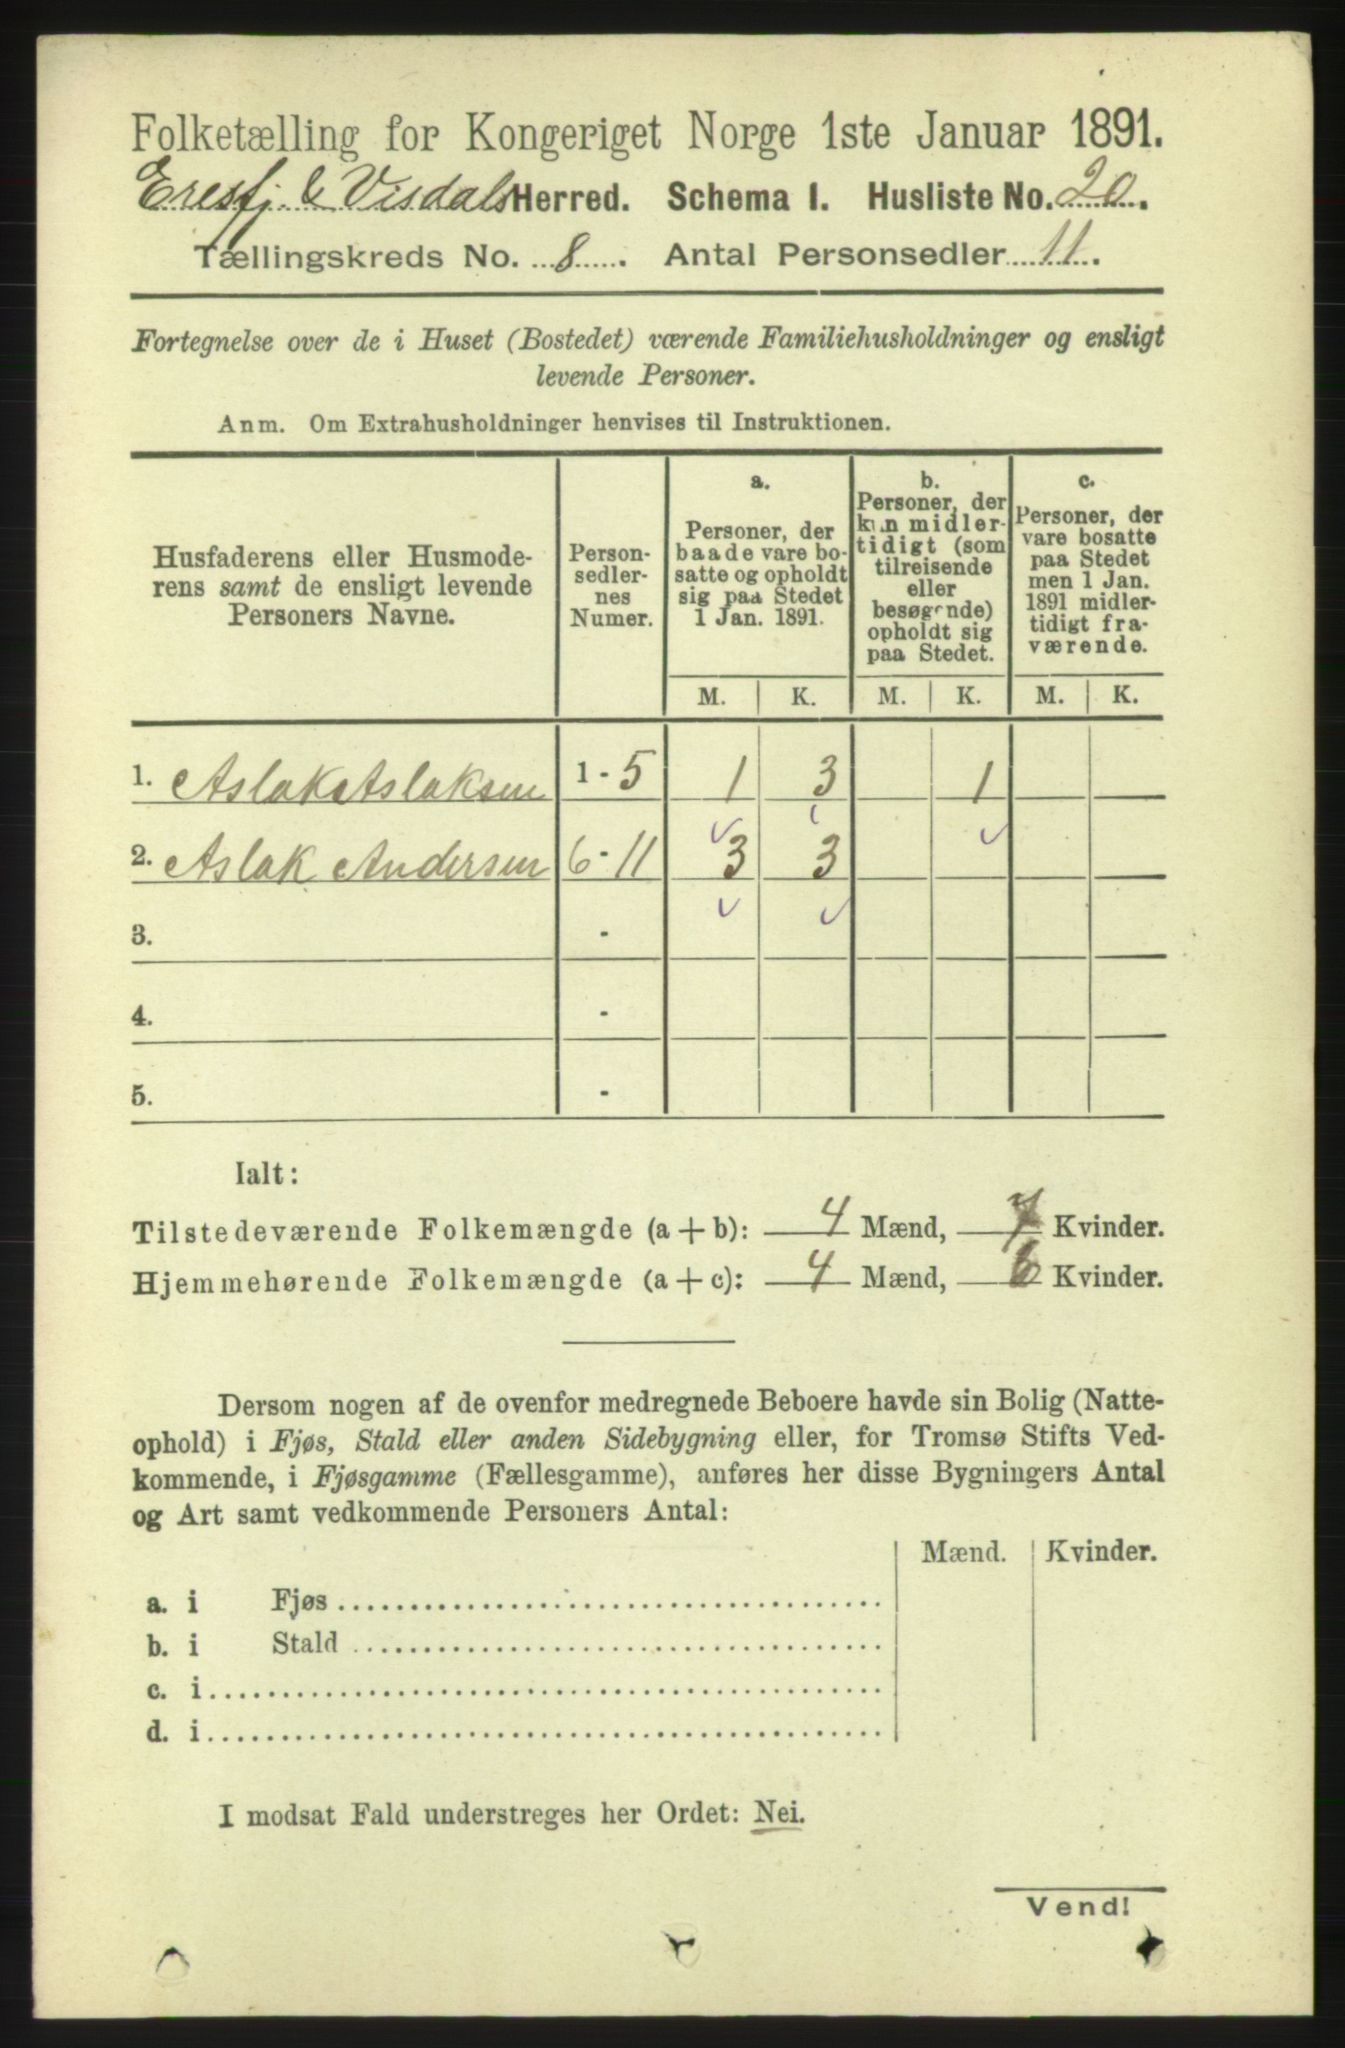 Folketælling for Kongeriget Norge 1ste Januar 1891.
Eresfj. & Visdals Herred. Schema I. Husliste No. 20.
Tællingskreds No. 8. Antal Personsedler 11.
Fortegnelse over de i Huset (Bostedet) værende Familiehusholdninger og ensligt
levende Personer.
Anm. Om Extrahusholdninger henvises til Instruktionen.
Husfaderens eller Husmode-
rens samt de ensligt levende
Personers Navne.
Person-
sedler-
nes
Numer.
a.
Personer, der
baade vare bo-
satte og opholdt
sig paa Stedet
1 Jan. 1891.
b.
Personer, der
kun midler-
tidigt (som
tilreisende
eller
besøgende)
opholdt sig
paa Stedet.
c.
Personer, der
vare bosatte
paa Stedet
men 1 Jan.
1891 midler-
tidigt fra-
værende.
M. K. M. K. M. K.
1. Aslak Aslaksen 1 - 5 1 3 1
2. Aslak Andersen 6 - 11 3 3
3. -
4. -
5. -
Ialt:
Tilstedeværende Folkemængde (a + b): 4 Mænd, 7 Kvinder.
Hjemmehørende Folkemængde (a + c): 4 Mænd, 6 Kvinder.
Dersom nogen af de ovenfor medregnede Beboere havde sin Bolig (Natte-
ophold) i Fjøs, Stald eller anden Sidebygning eller, for Tromsø Stifts Ved-
kommende, i Fjøsgamme (Fællesgamme), anføres her disse Bygningers Antal
og Art samt vedkommende Personers Antal:
Mænd. Kvinder.
a. i Fjøs
b. i Stald
c. i
d. i
I modsat Fald understreges her Ordet: Nei.
Vend!